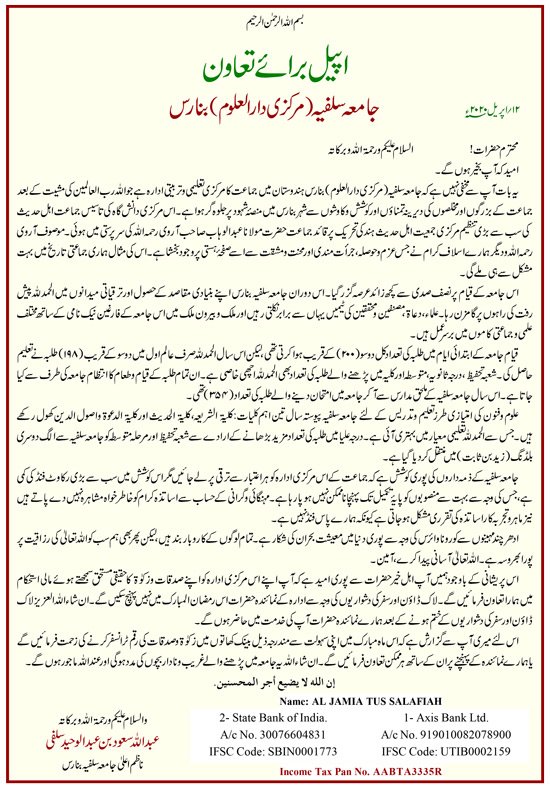 بسم اللہ الرحمٰن الرحیم
اپیل برائے تعاون
جامعہ سلفیہ (مرکزی دارالعلوم) بنارس
۱۲/اپریل ۲۰۲۰ء
محترم حضرات! السلام علیکم ورحمۃ اللہ وبرکاتہ
امید کہ آپ بخیر ہوں گے۔
یہ بات آپ سے مخفی نہیں ہے کہ جامعہ سلفیہ (مرکزی دارالعلوم) بنارس ہندوستان میں جماعت کا مرکزی تعلیمی وتربیتی ادارہ ہے جو اللہ رب العالمین کی مشیت کے بعد
جماعت کے بزرگوں اور مخلصوں کی دیرینہ تمناؤں اور کوشش وکاوشوں سے شہر بنارس میں منصۂ شہود پر جلوہ گر ہوا ہے۔ اس مرکزی دانش گاہ کی تاسیس جماعت اہل حدیث
کی سب سے بڑی تنظیم مرکزی جمعیت اہل حدیث ہند کی تحریک پر قائد جماعت حضرت مولانا عبدالوہاب صاحب آروی رحمہ اللہ کی سرپرستی میں ہوئی۔ موصوف آروی
رحمہ اللہ ودیگر ہمارے اسلاف کرام نے جس عزم وحوصلہ، جرأت مندی اور محنت ومشقت سے اسے صفحۂ ہستی پر وجود بخشا ہے۔ اس کی مثال ہماری جماعتی تاریخ میں بہت
مشکل سے ہی ملے گی۔
اس جامعہ کے قیام پر نصف صدی سے کچھ زائد عرصہ گزر گیا۔ اس دوران جامعہ سلفیہ بنارس اپنے بنیادی مقاصد کے حصول اور ترقیاتی میدانوں میں الحمدللہ پیش
رفت کی راہوں پر گامزن رہا۔ علماء، دعاۃ، مصنفین ومحققین کی ٹیمیں یہاں سے برابر نکلتی رہیں اور ملک وبیرون ملک میں اس جامعہ کے فارغین نیک نامی کے ساتھ مختلف
علمی وجماعتی کاموں میں برسرعمل ہیں۔
قیام جامعہ کے ابتدائی ایام میں طلبہ کی تعداد کل دوسو (۲۰۰) کے قریب ہوا کرتی تھی، لیکن اس سال الحمدللہ صرف عالم اول میں دوسو کے قریب (۱۹۸) طلبہ نے تعلیم
حاصل کی۔ شعبۂ تحفیظ، درجۂ ثانویہ، متوسطہ اور کلیہ میں پڑھنے والے طلبہ کی تعداد بھی الحمدللہ اچھی خاصی ہے۔ ان تمام طلبہ کے قیام وطعام کا انتظام جامعہ کی طرف سے کیا
جاتا ہے۔ اس سال جامعہ سلفیہ کے ملحق مدارس سے آکر جامعہ میں امتحان دینے والے طلبہ کی تعداد (۳۵۲) تھی۔
علوم وفنون کی امتیازی طرز تعلیم وتدریس کے لئے جامعہ سلفیہ پیوستہ سال تین اہم کلیات: کلیۃ الشریعہ، کلیۃ الحدیث اور کلیۃ الدعوۃ واصول الدین کھول رکھے
ہیں۔ جس سے الحمدللہ تعلیمی معیار میں بہتری آئی ہے۔ درجہ علیا میں طلبہ کی تعداد مزید بڑھانے کے ارادے سے شعبۂ تحفیظ اور مرحلۂ متوسطہ کو جامعہ سلفیہ سے الگ دوسری
بلڈنگ (زید بن ثابت) میں منتقل کردیا گیا ہے۔
جامعہ سلفیہ کے ذمہ داروں کی پوری کوشش ہے کہ جماعت کے اس مرکزی ادارہ کو ہر اعتبار سے ترقی پر لے جائیں مگر اس کوشش میں سب سے بڑی رکاوٹ فنڈ کی کمی
ہے، جس کی وجہ سے بہت سے منصوبوں کو پایۂ تکمیل تک پہنچانا ممکن نہیں ہو پا رہا ہے۔ مہنگائی وگرانی کے حساب سے اساتذہ کرام کو خاطر خواہ مشاہرہ نہیں دے پاتے ہیں
نیز ماہر وتجربہ کار اساتذہ کی تقرری مشکل ہو جاتی ہے کیونکہ ہمارے پاس فنڈ نہیں ہے۔
ادھر چند مہینوں سے کورونا وائرس کی وجہ سے پوری دنیا میں معیشت بحران کی شکار ہے۔ تمام لوگوں کے کاروبار بند ہیں، لیکن پھر بھی ہم سب کو اللہ تعالیٰ کی رزاقیت پر
پورا بھروسہ ہے۔ اللہ تعالیٰ آسانی پیدا کرے، آمین۔
اس پریشانی کے باوجود ہمیں آپ اہل خیر حضرات سے پوری امید ہے کہ آپ اپنے اس مرکزی ادارہ کو اپنے صدقات وزکوٰۃ کا حقیقی مستحق سمجھتے ہوئے مالی استحکام
میں ہمارا تعاون فرمائیں گے۔ لاک ڈاؤن اور سفر کی دشواریوں کی وجہ سے ادارہ کے نمائندہ حضرات اس رمضان المبارک میں نہیں پہنچ سکیں گے۔ ان شاء اللہ العزیز لاک
ڈاؤن اور سفر کی دشواریوں کے ختم ہونے کے بعد ہمارے نمائندہ حضرات آپ کی خدمت میں حاضر ہوں گے۔
اس لئے میری آپ سے گزارش ہے کہ اس ماہ مبارک میں اپنی سہولت سے مندرجہ ذیل بینک کھاتوں میں زکوٰۃ وصدقات کی رقم ٹرانسفر کرنے کی زحمت فرمائیں گے
یا ہمارے نمائندہ کے پہنچنے پر ان کے ساتھ ہر ممکن تعاون فرمائیں گے۔ ان شاء اللہ یہ جامعہ میں پڑھنے والے غریب ونادار بچوں کی مدد ہوگی اور عنداللہ ماجور ہوں گے۔
إن الله لا يضيع أجر المحسنين.
Name: AL JAMIA TUS SALAFIAH
2- State Bank of India. 1- Axis Bank Ltd.
A/c No. 30076604831 A/c No. 919010082078900
IFSC Code: SBIN0001773 IFSC Code: UTIB0002159
Income Tax Pan No. AABTA3335R
والسلام علیکم ورحمۃ اللہ وبرکاتہ
عبداللہ سعود بن عبدالوحید سلفی
ناظم اعلیٰ جامعہ سلفیہ بنارس